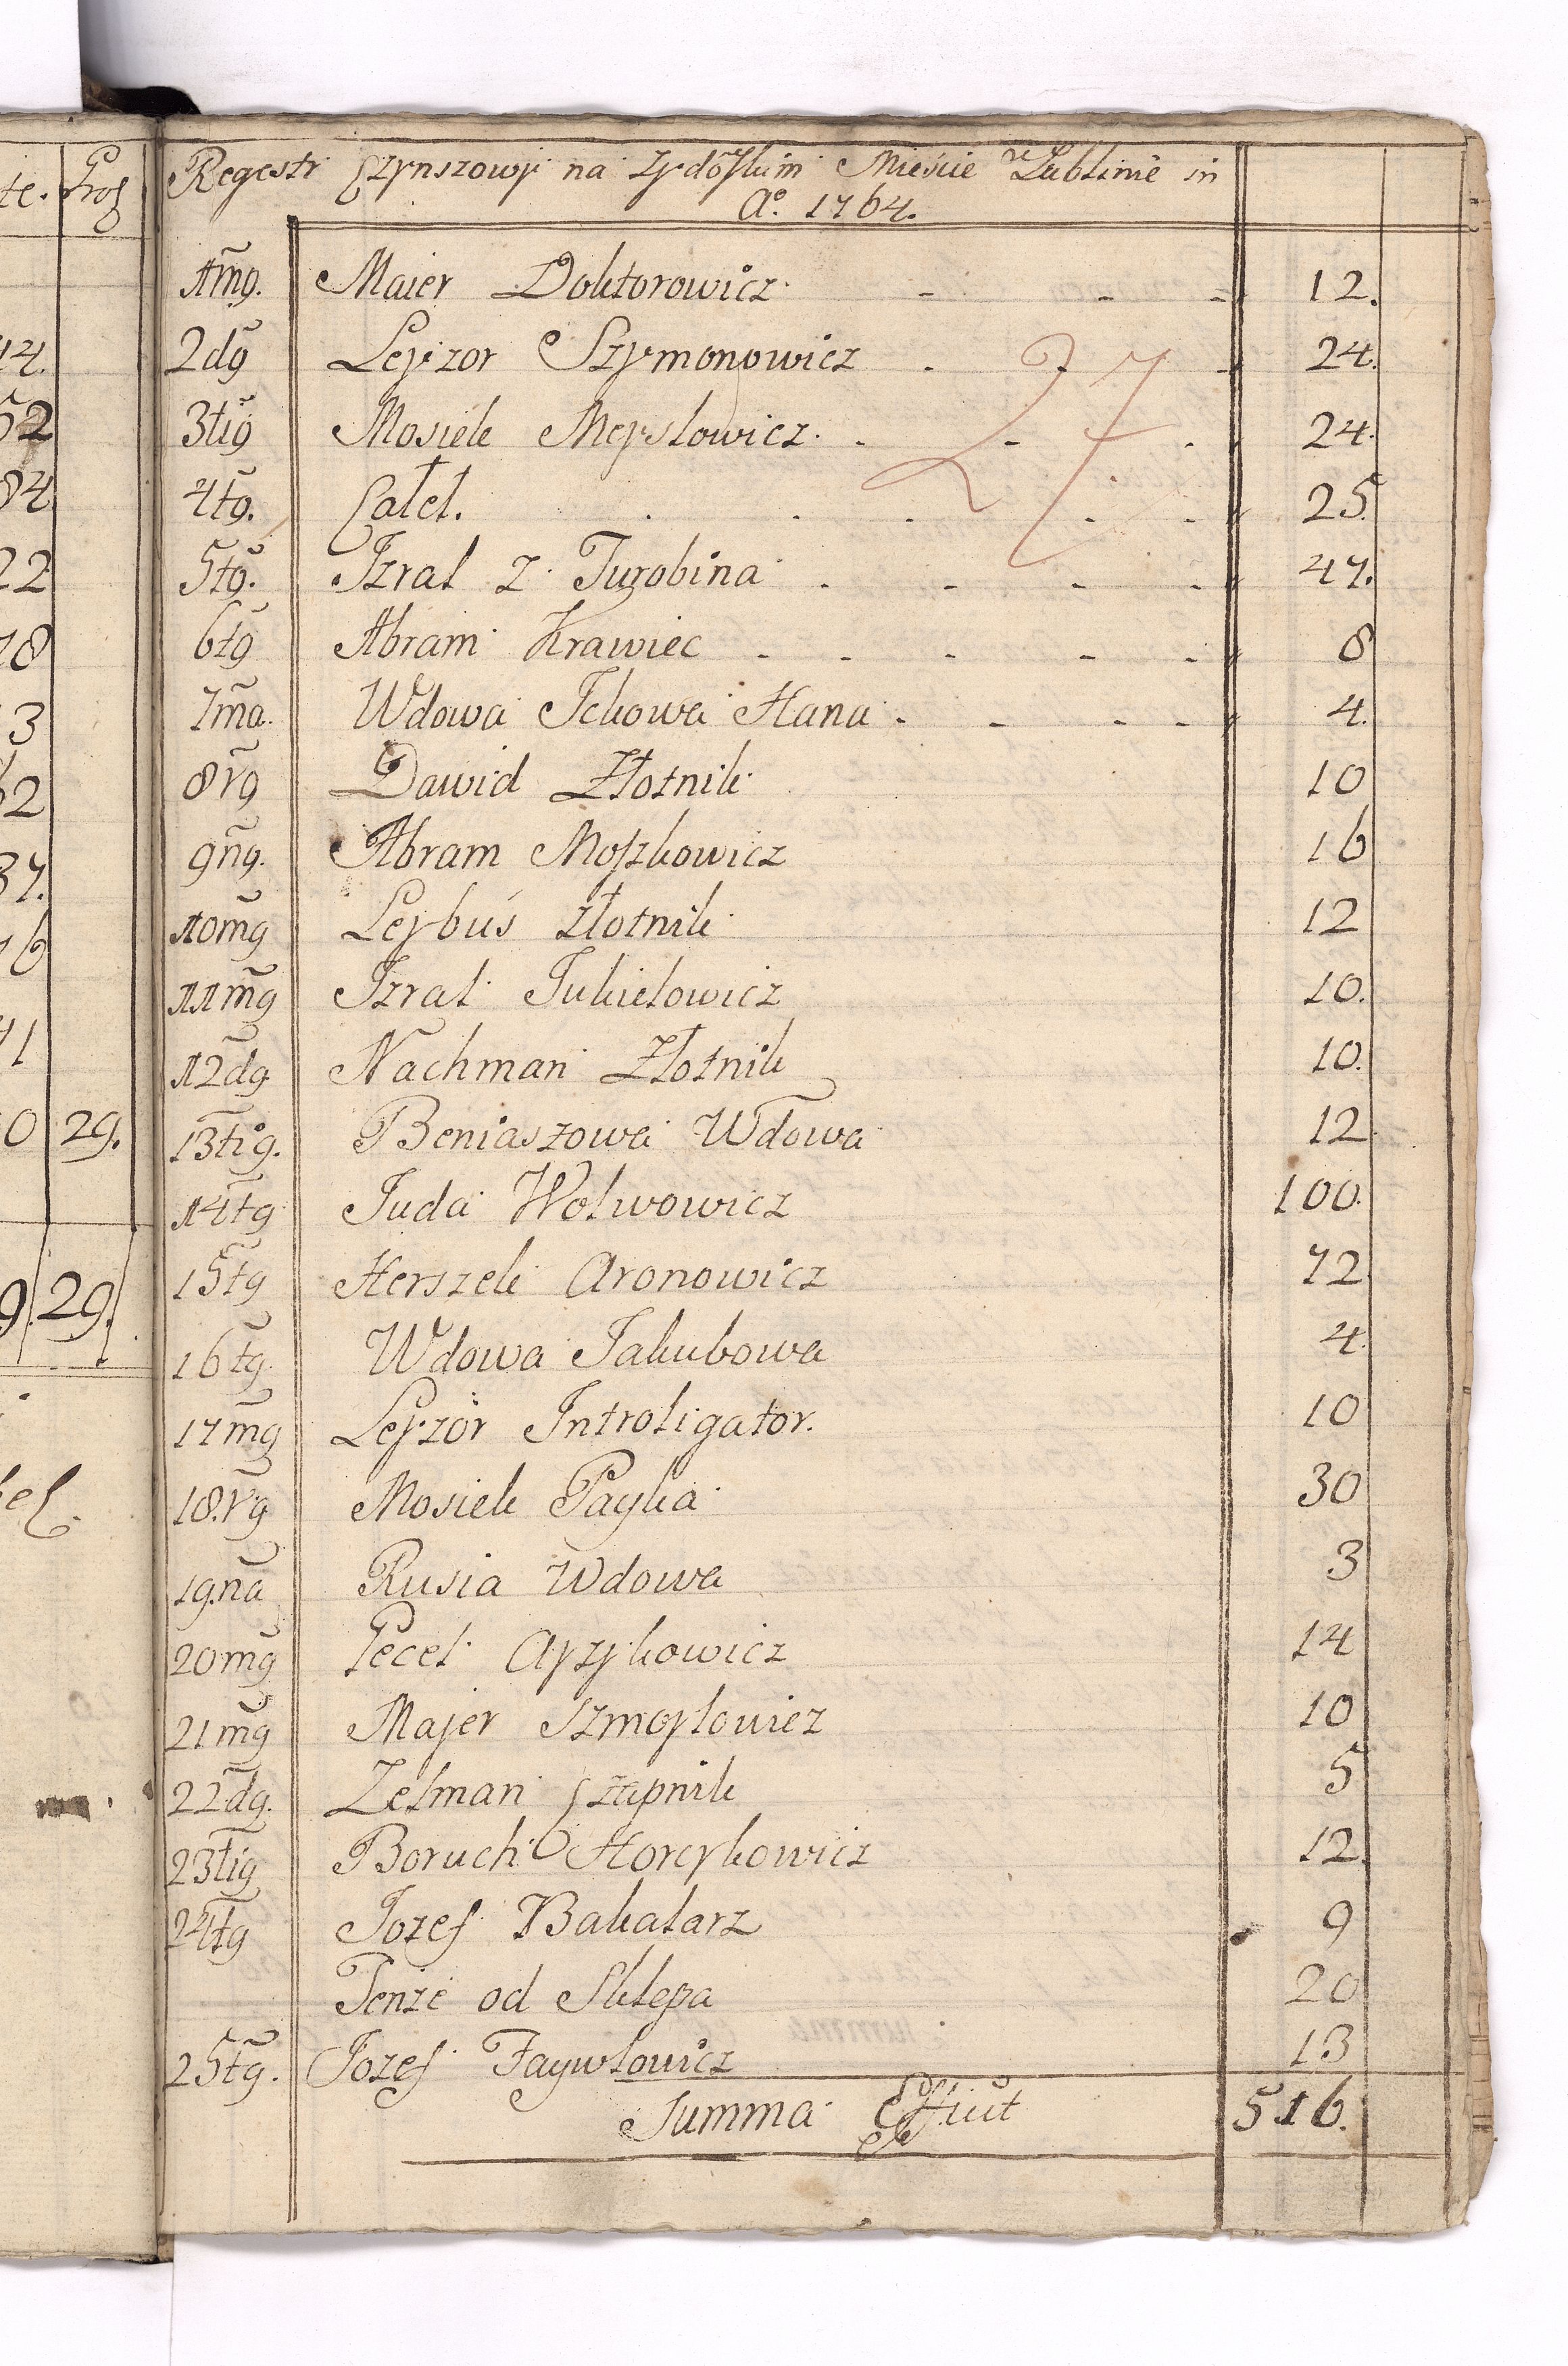 te. Gros
Regestr Czynszowy na Żydoſkim Mieście w Lublinie in
Ao. 1764.
1mo. Maier Doktorowicz - - - 12.
2do Leyzor Szymonowicz - - - 24.
3tio Mosiek Meyslowicz - - - 24.
4to. Calel. - - - - - 25
5to. Izral z Turobina - - - - 47.
6to Abram Krawiec - - - - - 8
7ma. Wdowa Ickowa Hana - - - - 4.
8vo Dawid Złotnik 10
9no. Abram Moſzkowicz 16
10mo Leybuś złotnik 12
11mo Izral Jukielowicz 10.
12do Nachman Złotnik 10.
13tio. Beniaszowa Wdowa 12
14to Juda Wolwowicz 100.
15to Herszek Aronowicz 72
16to Wdowa Jakubowa 4.
17mo Leyzor Introligator. 10
18.vo Mosiek Payka 30
19.na Rusia Wdowa 3
20mo Pecel Ayzykowicz 14
21mo Majer Szmoylowicz 10
22do. Zelman Czapnik 5
23tio Boruch Horcykowicz 12.
24to Jozef Bakalarz 9
Tenże od Sklepa 20
25to. Jozef Faywlowicz 13
Summa Efficit 516.
27
52
84
22
78
3
62
37.
76
0 29.
9. 29.